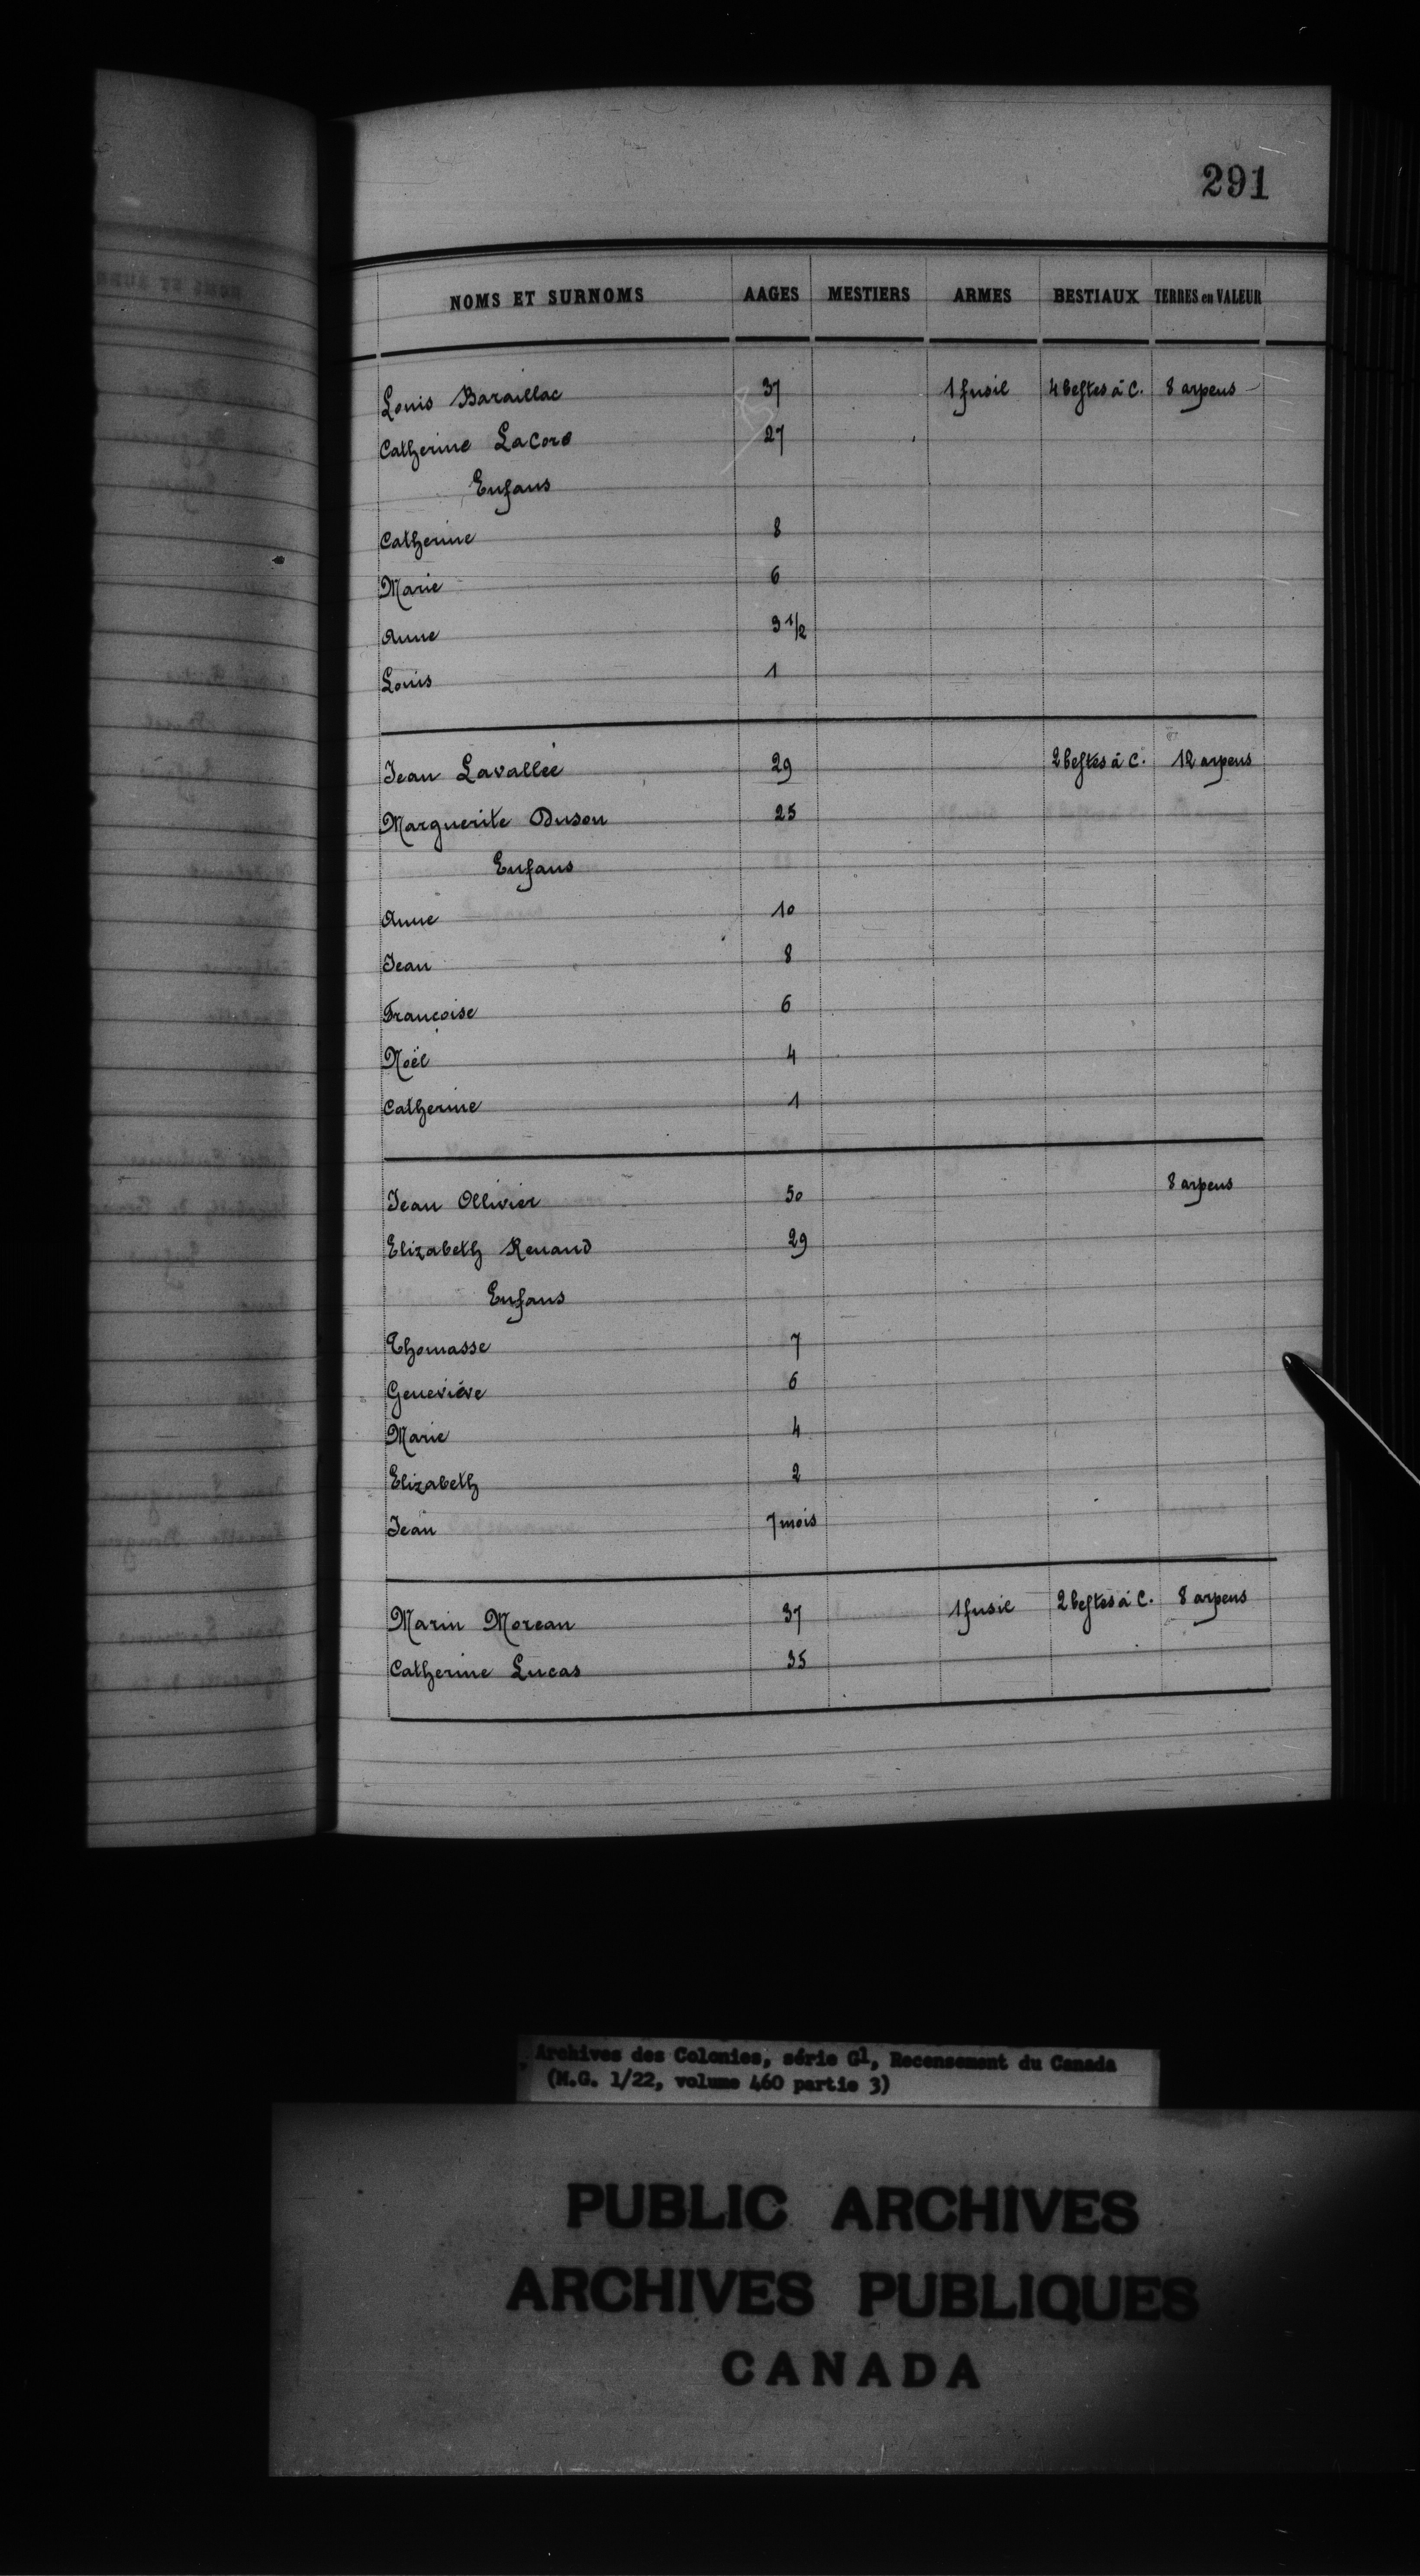 291
NOMS ET SURNOMS AAGES MESTIERS ARMES BESTIAUX TERRES en VALEUR
Louis Baraillac 37 1 fusil 4 bestes à C. 8 arpens
Catherine LaCord 27
Enfans
Catherine 8
Marie 6
Anne 3 1/2
Louis 1
Jean Lavallée 29 2 bestes à C. 12 arpens
Marguerite Duson 25
Enfans
Anne 10
Jean 8
Francoise 6
Noël 4
Catherine 1
Jean Ollivier 50 8 arpens
Elizabeth Renaud 29
Enfans
Thomasse 7
Geneviève 6
Marie 4
Elizabeth 2
Jean 7 mois
Marin Moreau 37 1 fusil 2 bestes à C. 8 arpens
Catherine Lucas 35
Archives des Colonies, série G1, Recensement du Canada
(M.G. 1/22, volume 460 partie 3)
PUBLIC ARCHIVES
ARCHIVES PUBLIQUES
CANADA